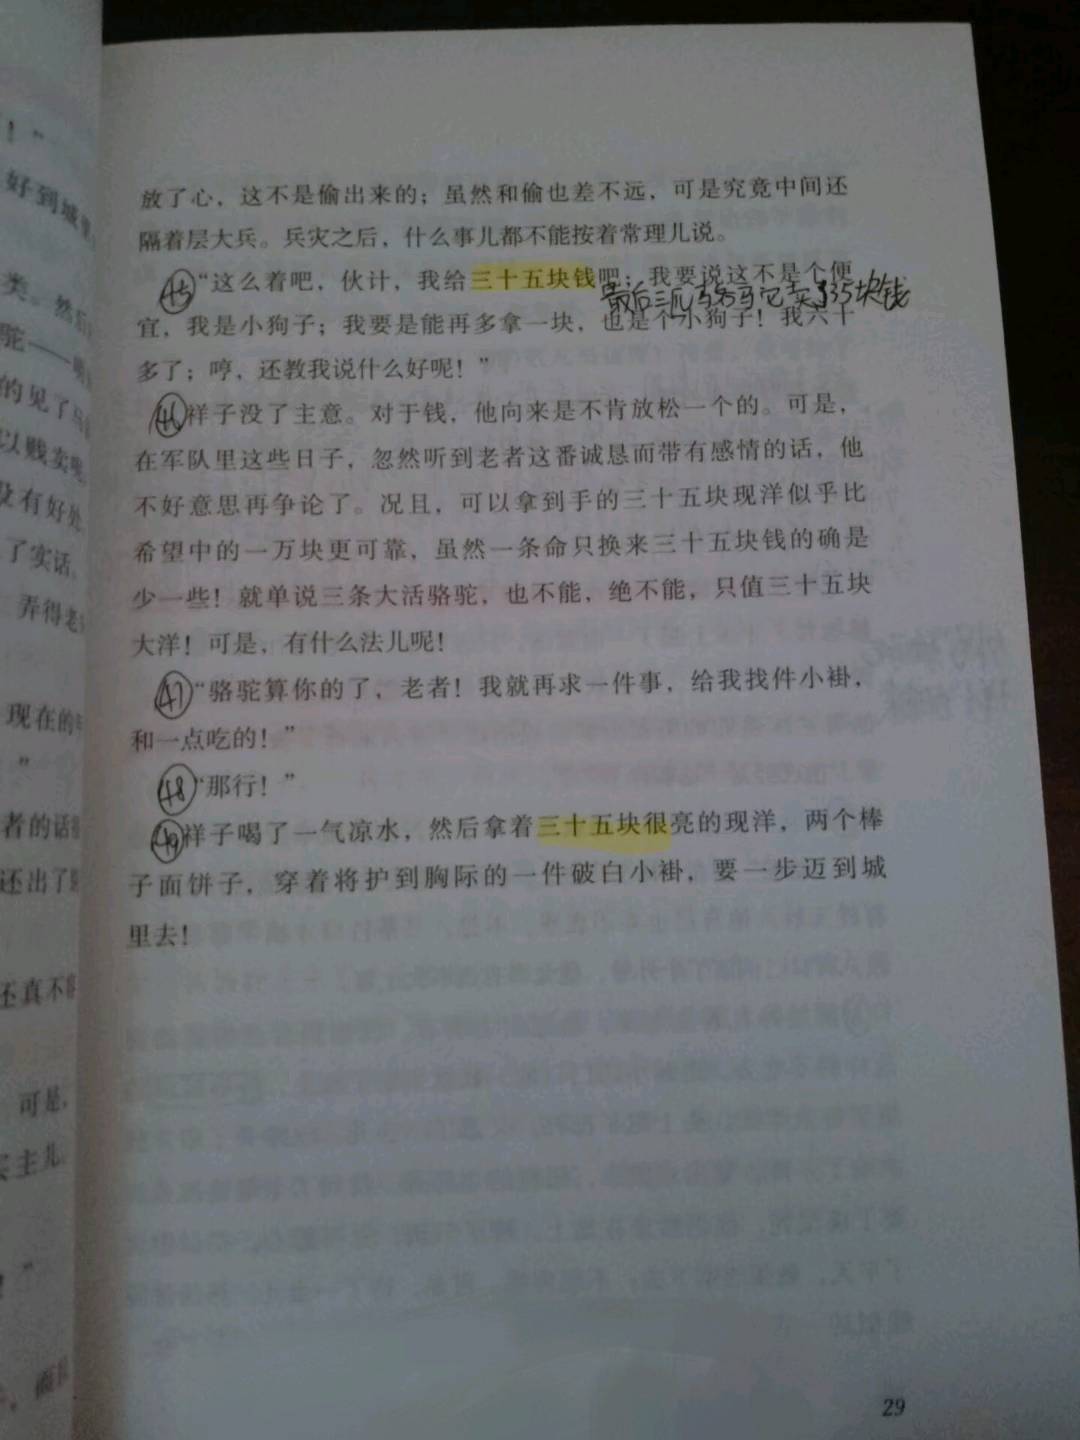 ！”
好到城里
类。然后
驼——
的见了马
以贱卖
没有好处
了实话。
弄得老
现在的
”
者的话
还出了
还真不
可是，
买主儿
”
放了心，这不是偷出来的；虽然和偷也差不远，可是究竟中间还
隔着层大兵。兵灾之后，什么事儿都不能按着常理儿说。
45“这么着吧，伙计，我给三十五块钱吧；我要说这不是个便
最后三匹骆驼卖了35块钱
宜，我是小狗子；我要是能再多拿一块，也是个小狗子！我六十
多了；哼，还教我说什么好呢！”
46祥子没了主意。对于钱，他向来是不肯放松一个的。可是，
在军队里这些日子，忽然听到老者这番诚恳而带有感情的话，他
不好意思再争论了。况且，可以拿到手的三十五块现洋似乎比
希望中的一万块更可靠，虽然一条命只换来三十五块钱的确是
少一些！就单说三条大活骆驼，也不能，绝不能，只值三十五块
大洋！可是，有什么法儿呢！
47“骆驼算你的了，老者！我就再求一件事，给我找件小褂，
和一点吃的！”
48“那行！”
49祥子喝了一气凉水，然后拿着三十五块很亮的现洋，两个棒
子面饼子，穿着将护到胸际的一件破白小褂，要一步迈到城
里去！
29